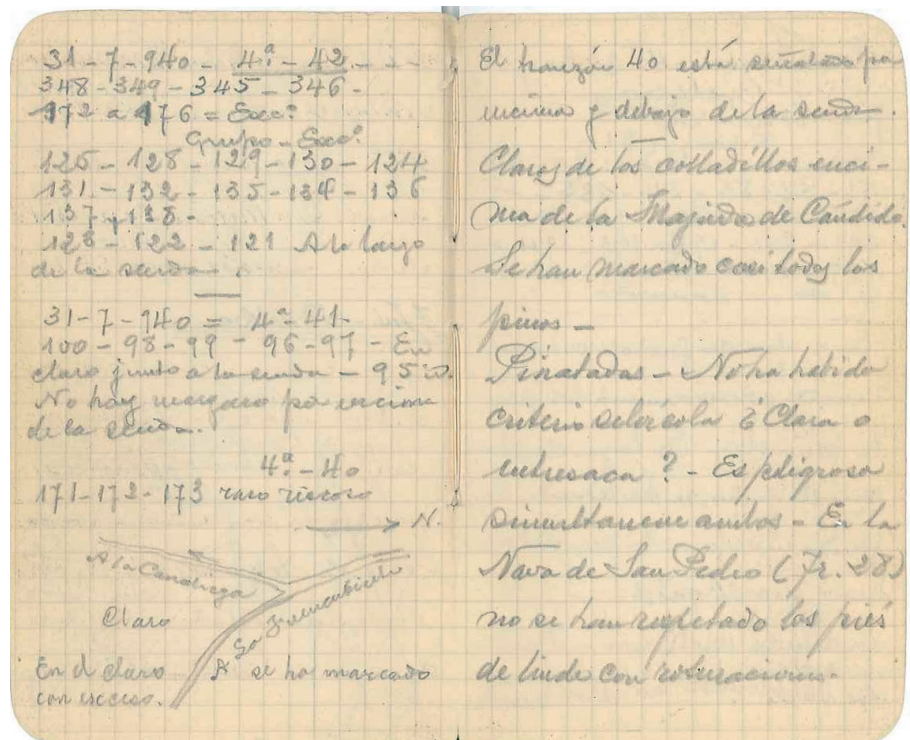 31-7-940 - 4ª - 42 - - -
348-349-345-346-
172 a 176 = Exccº
Grupo - Exccº
125-128-129-130-124
131-132-135-134-136
137 y 138-
123-122-121 A lo largo
de la senda.
31-7-940 = 4ª-41-
100-98-99-96-97- En
claro junto a la senda - 95 id.
No hay marqueo por encima
de la senda.
4ª-40
171-172-173 raso riscoso
N.
A la Canaliega
Claro
A La Fuenterbiente
En el claro se ha marcado
con exceso.
El tranzón 40 está señalado por
encima y debajo de la senda.
Claros de los colladillos enci-
ma de la Majada de Cándido.
Se han marcado casi todos los
pinos -
Pinatadas - No ha habido
criterio selvícola ¿Clara o
entresaca? - Es peligroso
simultanear ambos - En la
Nava de San Pedro (Tr. 28)
no se han respetado los piés
de linde con roturaciones.